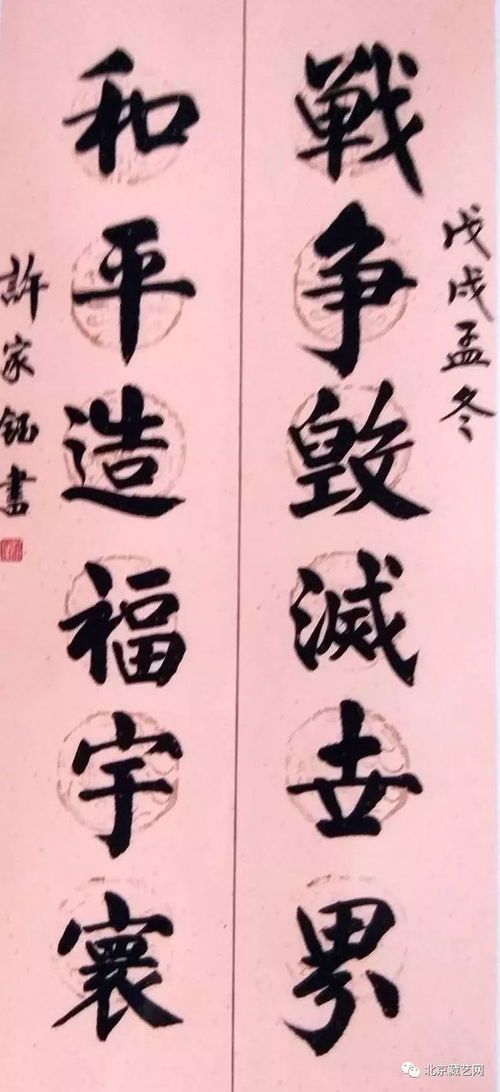 戊戌孟冬
戦争毁滅世界
和平造福宇寰
許家鈺書
北京藏艺网